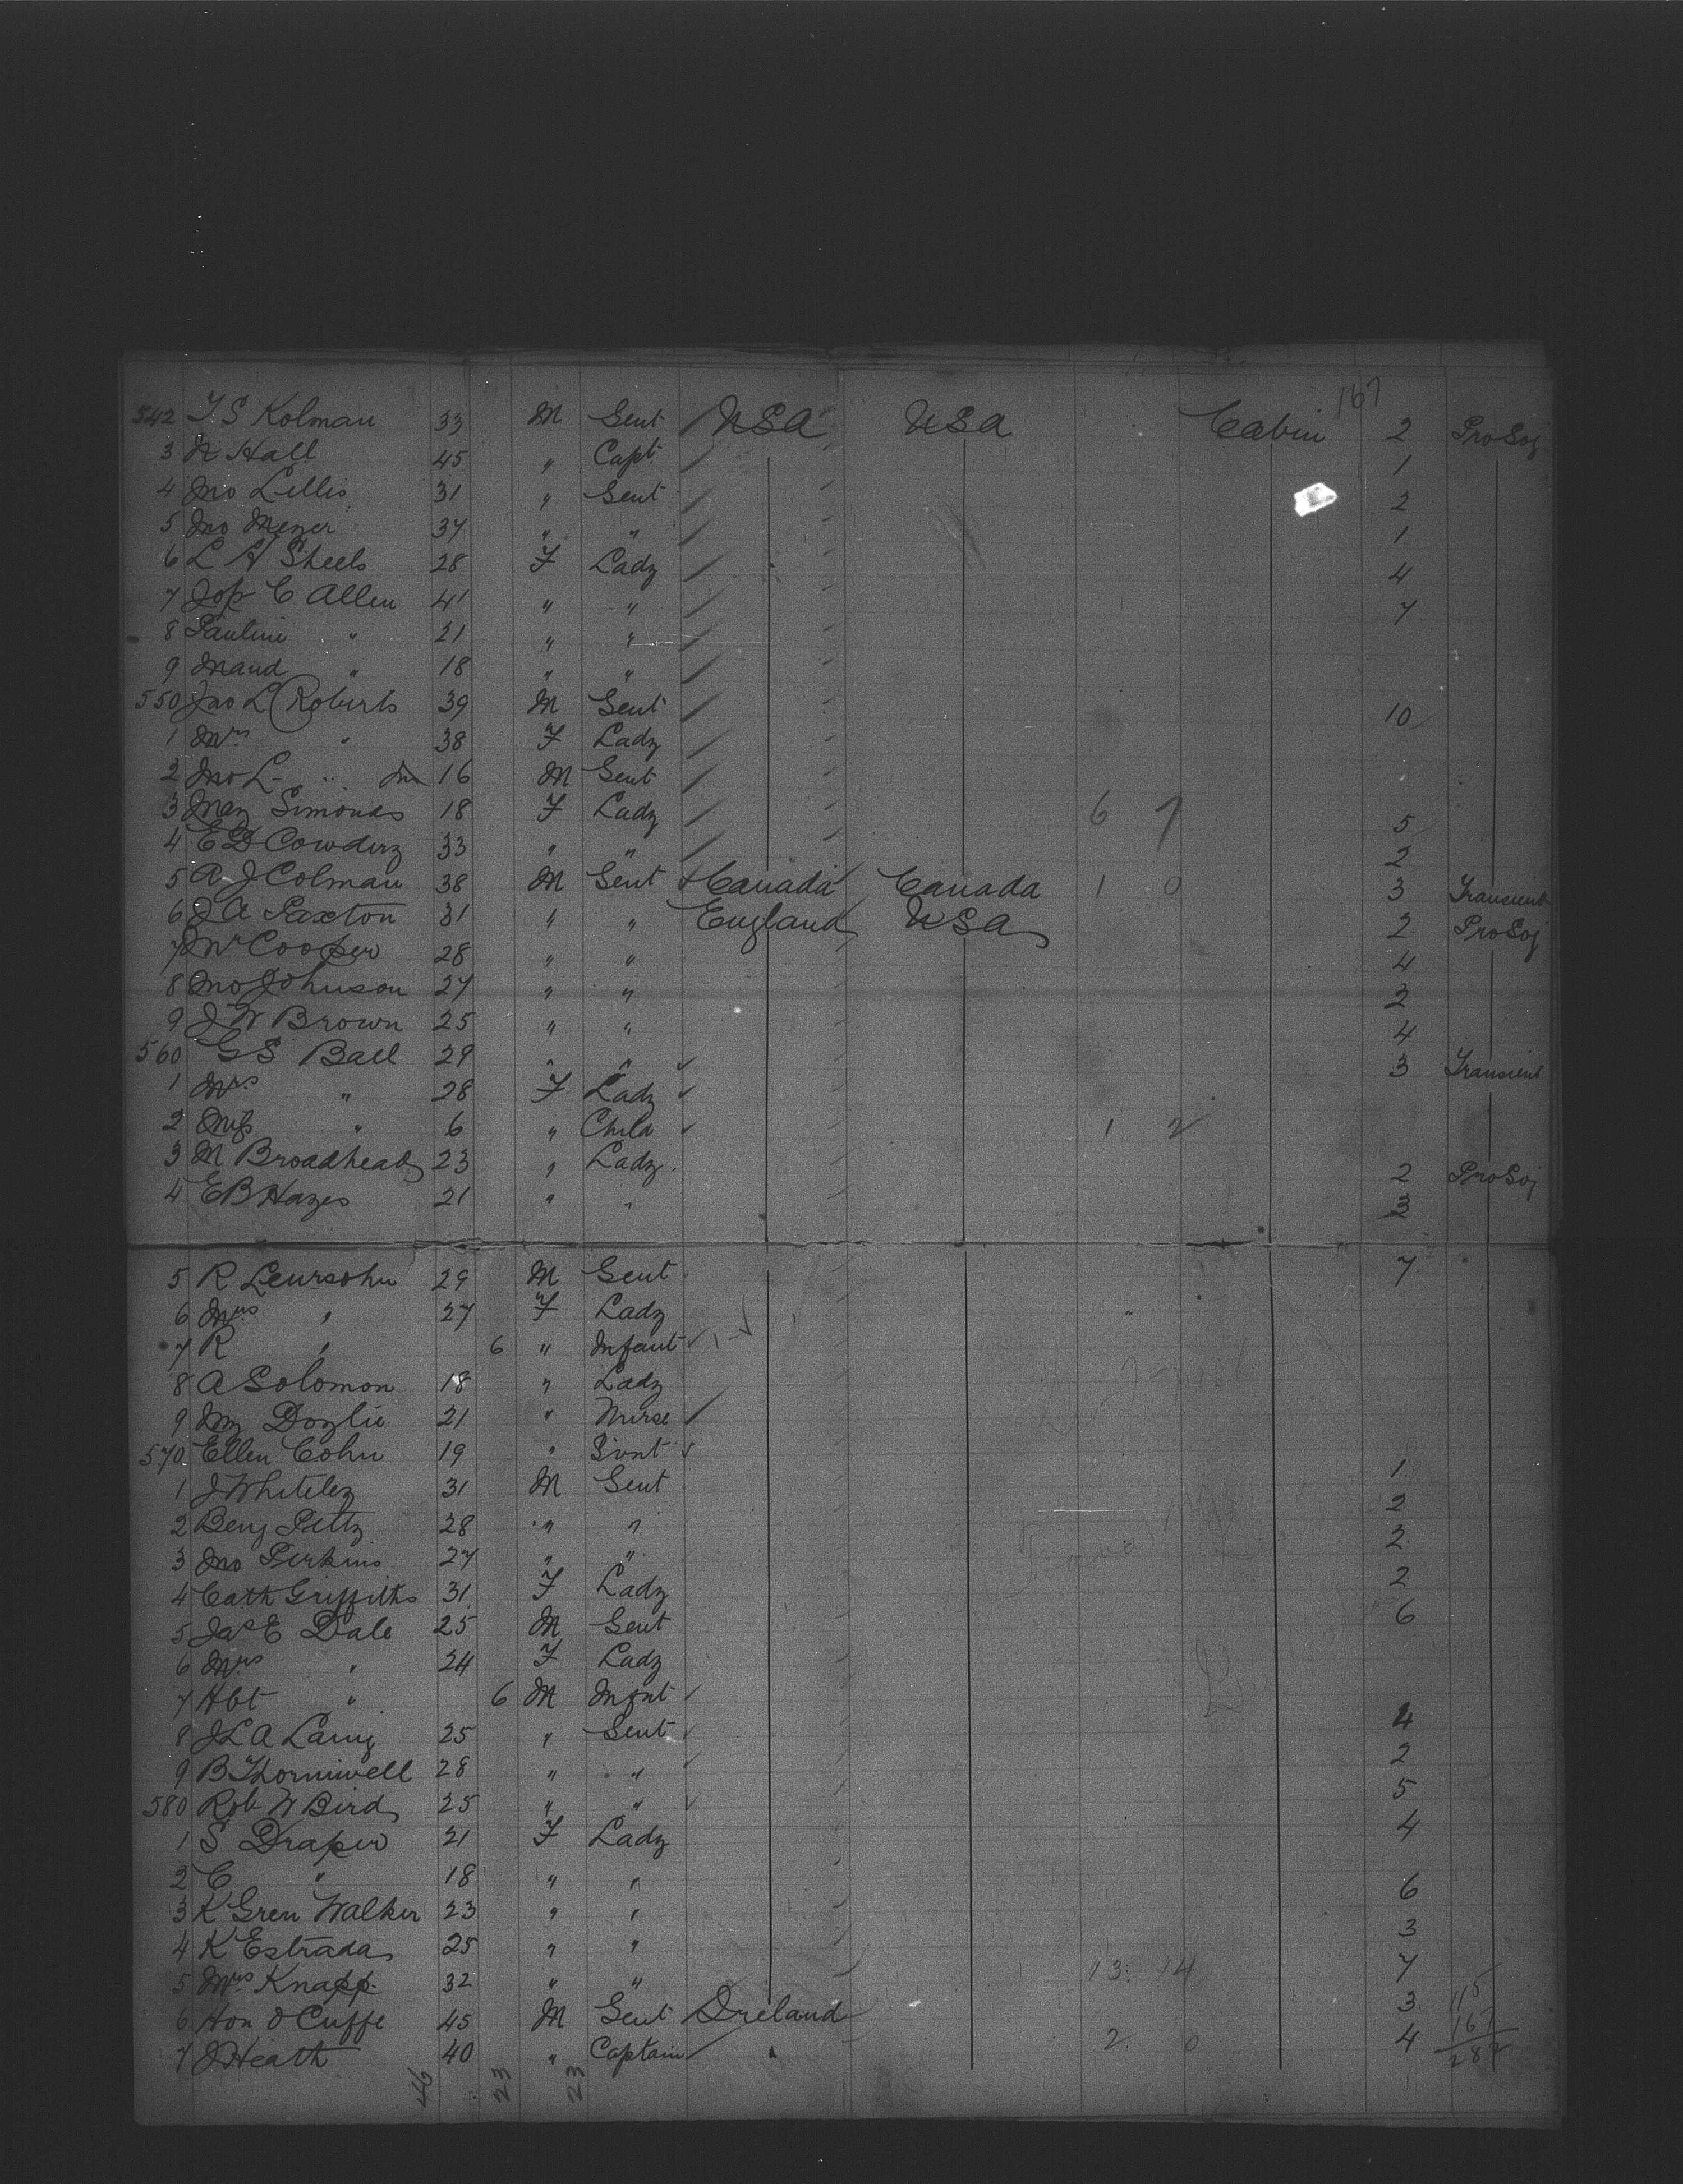 167
542 T S Kolman 33 M Gent USA USA Cabin 2 Pro Soj
3 N Hall 45 " Capt 1
4 Jno Lillis 31 " Gent 2
5 Jno Mezer 37 " " 1
6 L H Sheels 28 F Lady 4
7 Jos C Allen 41 " " 7
8 Pauline " 21 " "
9 Maud " 18 " "
550 Jno L Roberts 39 M Gent 10
1 Mrs " 38 F Lady
2 Jno L " Jnr 16 M Gent
3 May Simonds 18 F Lady 6 7 5
4 E D Cowdery 33 " " 2
5 A J Colman 38 M Gent Canada Canada 1 0 3 Transient
6 J A Paxton 31 " " England USA 2 Pro Soj
7 Mr Cooper 28 " " 4
8 Jno Johnson 27 " " 2
9 J W Brown 25 " " 4
560 G S Ball 29 " " 3 Transient
1 Mrs " 28 F Lady
2 Miss " 6 " Child 1 2
3 M Broadhead 23 " Lady 2 Pro Soj
4 E B Hayes 21 " " 3
5 R Leursohn 29 M Gent 7
6 Mrs " 27 F Lady
7 R " 6 " Infant
8 A Solomon 18 " Lady
9 My Doylie 21 " Nurse
570 Ellen Cohn 19 " Svnt 1
1 J Whiteley 31 M Gent 2
2 Benj Petty 28 " " 2
3 Jno Perkins 27 " " 2
4 Cath Griffiths 31 F Lady 6
5 Jas E Dale 25 M Gent
6 Mrs " 24 F Lady
7 Hbt " 6 M Infnt
8 J L A Laing 25 " Gent 4
9 B Thorniwell 28 " " 2
580 Rob W Bird 25 " " 5
1 S Draper 21 F Lady 4
2 C " 18 " "
3 K Gren Walker 23 " " 6
4 K Estrada 25 " " 3
5 Mrs Knapp 32 " " 13 14 7
6 Hon O Cuffe 45 M Gent Ireland 3 115
7 J Heath 40 " Captain " 2 0 4 167
282
46 23 23